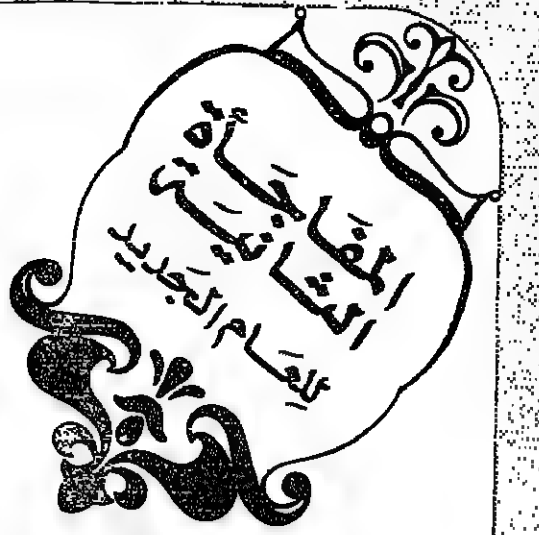 المفَاجَأة
الثانيَة
للِعَام الجَديد